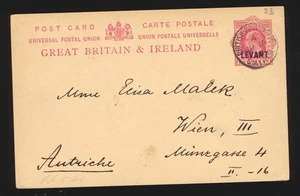 33
POST CARD CARTE POSTALE
UNIVERSAL POSTAL UNION UNION POSTALE UNIVERSELLE
GREAT BRITAIN & IRELAND
LEVANT
Mme Elisa Malek
Wien, III
Münzgasse 4
Autriche II. -16